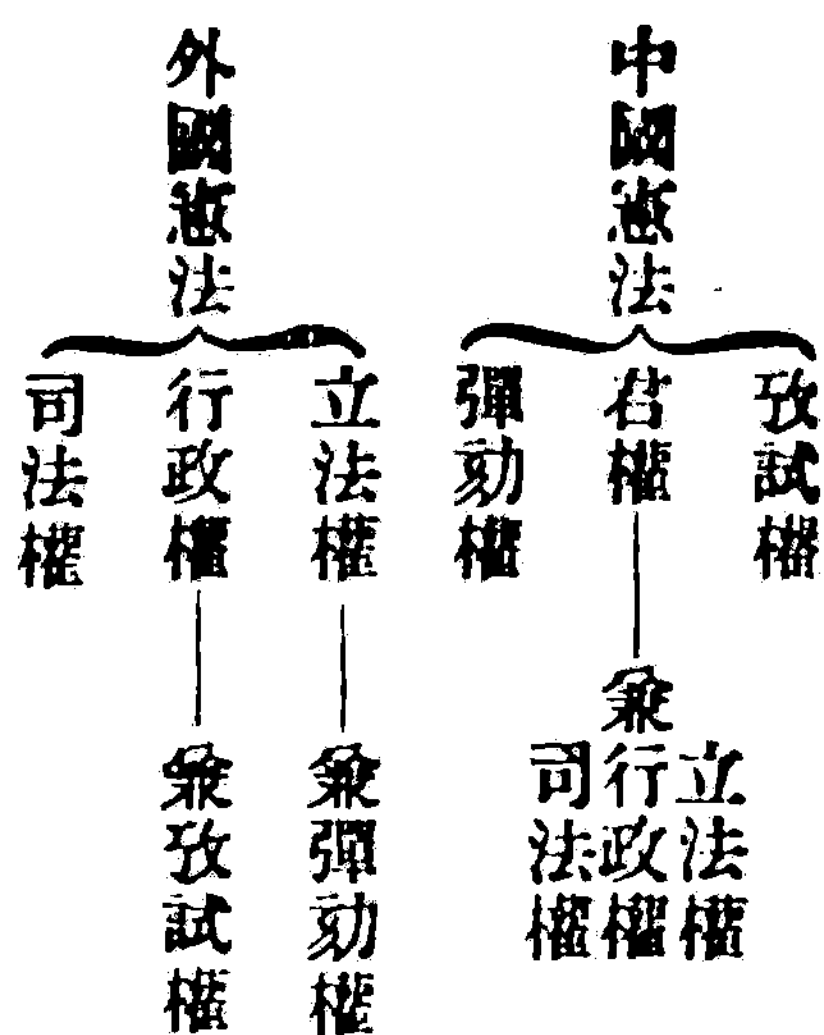 中國憲法
攷試權
君權
兼
立法權
行政權
司法權
彈劾權
外國憲法
立法權
兼彈劾權
行政權
兼攷試權
司法權